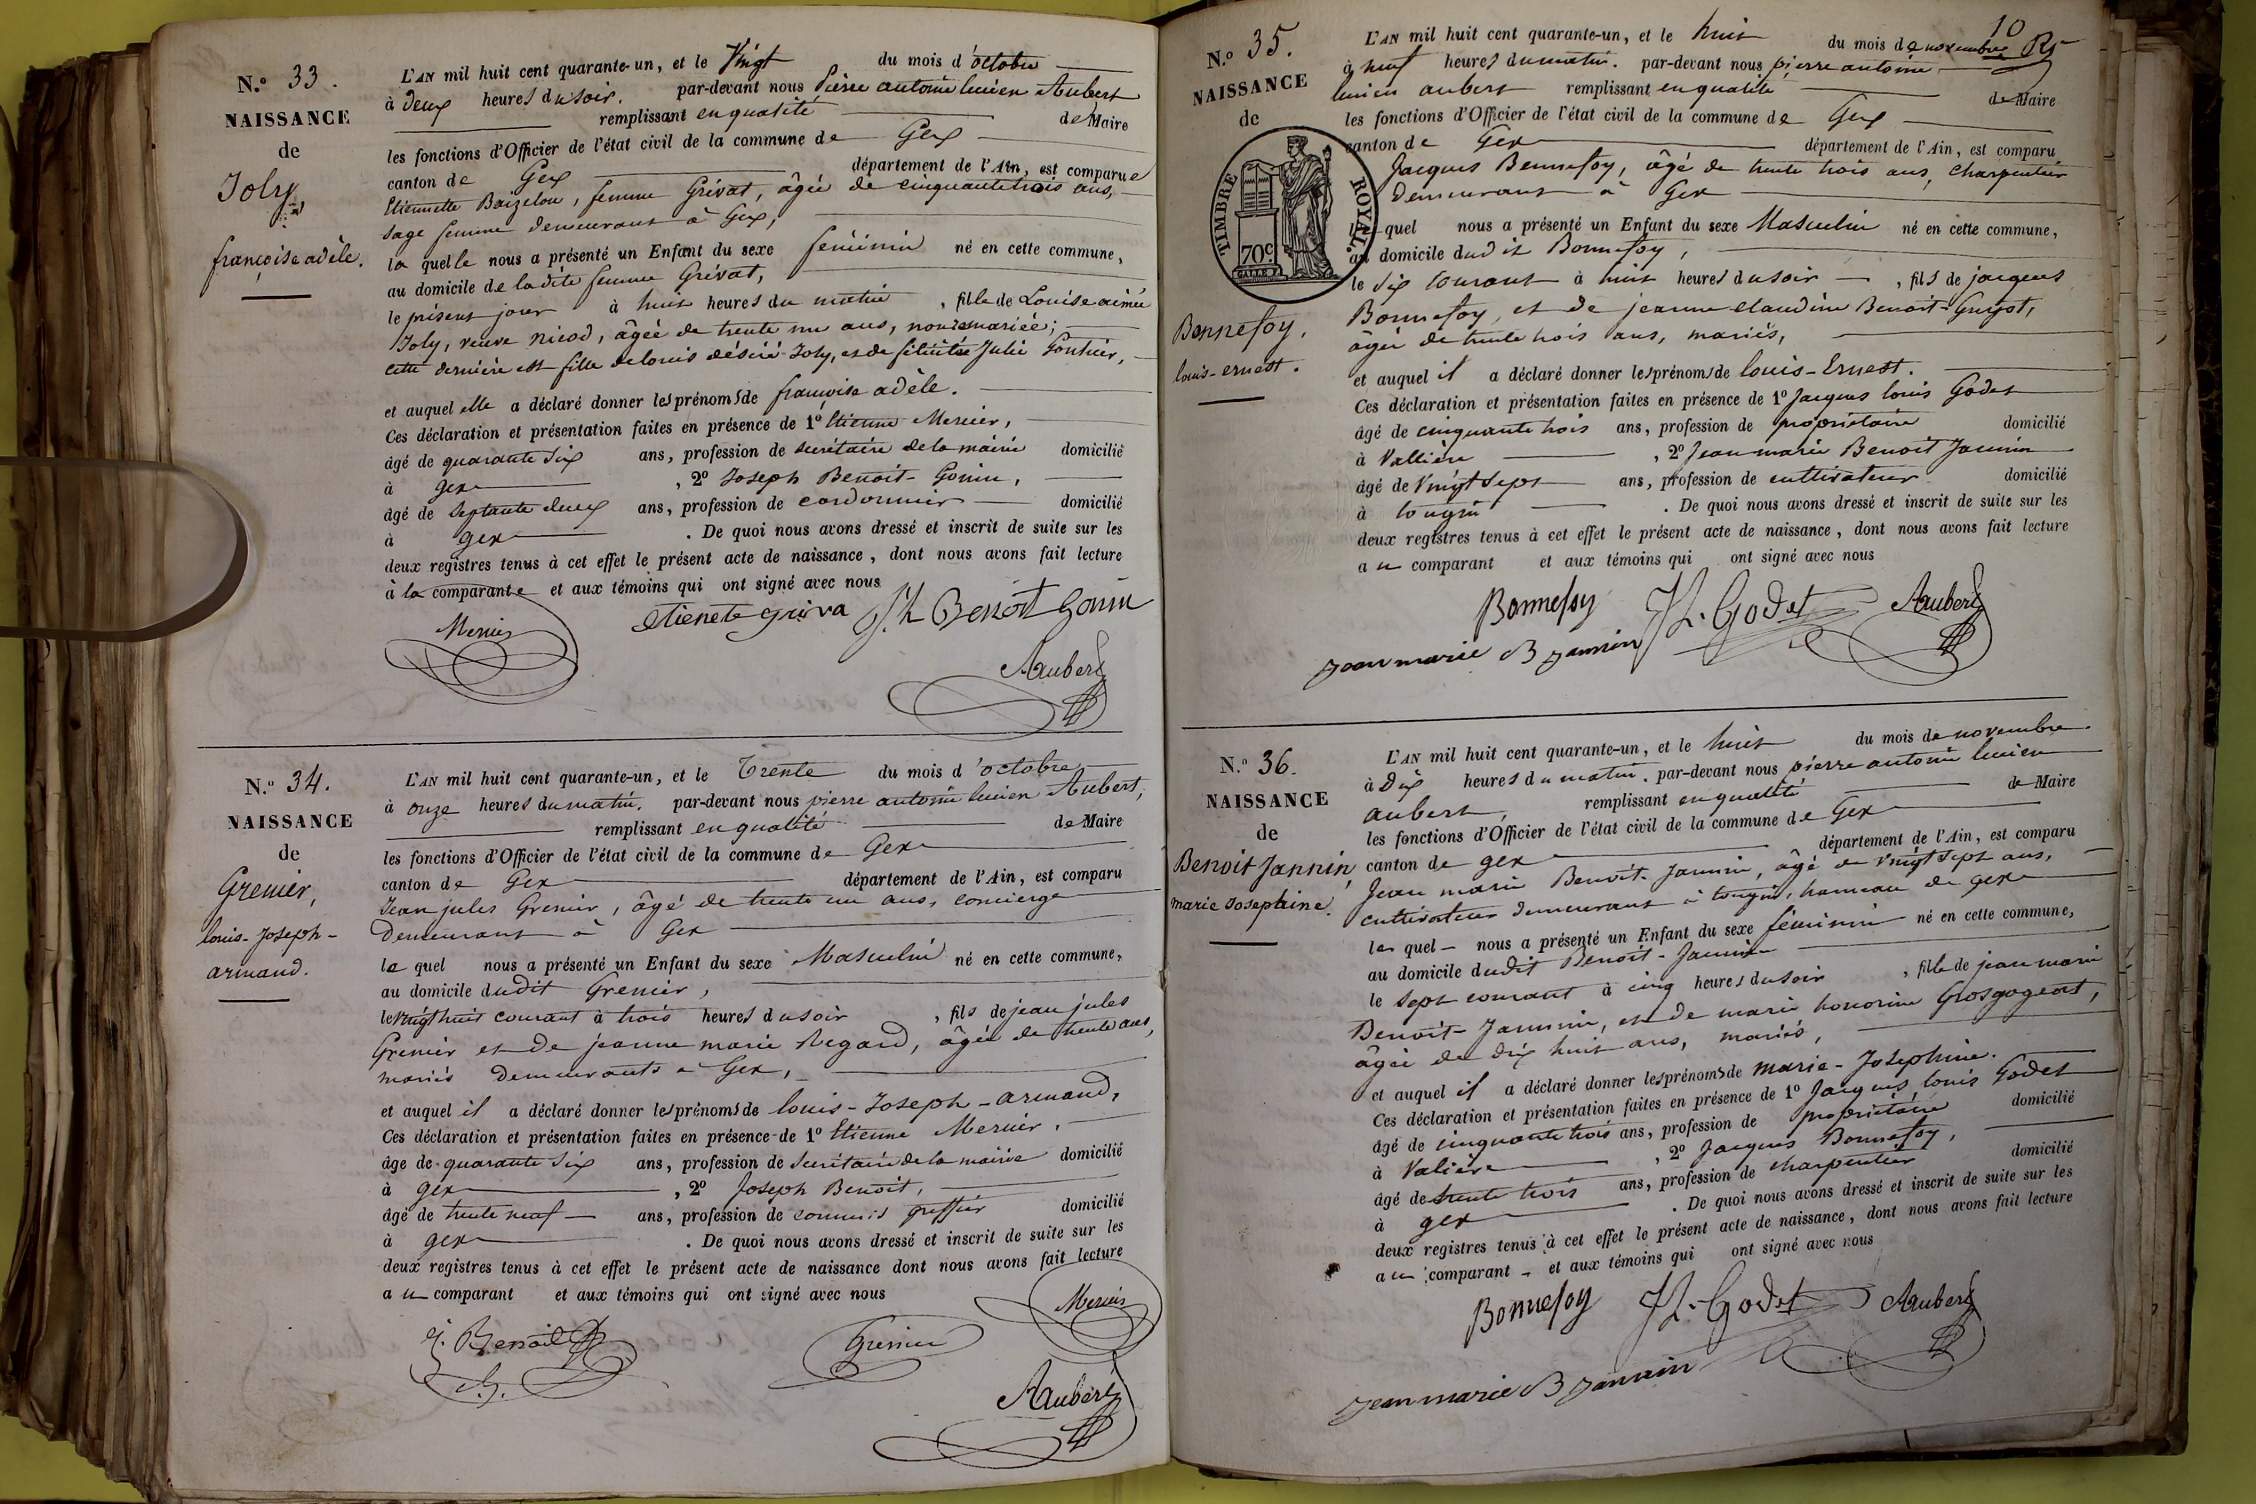 N.º 33.
NAISSANCE
de
Joly,
françoise adèle.
L'AN mil huit cent quarante-un, et le Vingt du mois d'octobre
à deux heures du soir. par-devant nous Pierre antoine lucien Aubert
remplissant en qualité de Maire
les fonctions d'Officier de l'état civil de la commune de Gex
canton de Gex département de l'Ain, est comparue
Etiennette Barzelou, femme Grévat, âgée de cinquante trois ans,
sage femme demeurant à Gex,
la quelle nous a présenté un Enfant du sexe féminin né en cette commune,
au domicile de la dite femme Grévat,
le présent jour à huit heures du matin, fille de Louise aimée
Joly, veuve nicod, âgée de trente un ans, non remariée;
cette dernière est fille de louis désiré Joly, et de félicitée Julie Gonthier,
et auquel elle a déclaré donner les prénoms de françoise adèle.
Ces déclaration et présentation faites en présence de 1º Etienne Mercier,
âgé de quarante six ans, profession de secrétaire de la mairie domicilié
à gex, 2º Joseph Benoit-Gonin,
âgé de septante deux ans, profession de cordonnier domicilié
à gex. De quoi nous avons dressé et inscrit de suite sur les
deux registres tenus à cet effet le présent acte de naissance, dont nous avons fait lecture
à la comparante et aux témoins qui ont signé avec nous
Mercier etienete griva J.h Benoit Gonin
Aubert
N.º 34.
NAISSANCE
de
Grenier,
louis-Joseph-
armand.
L'AN mil huit cent quarante-un, et le Trente du mois d'octobre
à onze heures du matin. par-devant nous pierre antoine lucien Aubert,
remplissant en qualité de Maire
les fonctions d'Officier de l'état civil de la commune de Gex
canton de Gex département de l'Ain, est comparu
Jean jules Grenier, âgé de trente un ans, concierge
demeurant à Gex
le quel nous a présenté un Enfant du sexe Masculin né en cette commune,
au domicile dudit Grenier,
le vingt huit courant à trois heures du soir, fils de jean jules
Grenier et de jeanne marie Regard, âgée de trente ans,
mariés demeurants à Gex,
et auquel il a déclaré donner les prénoms de louis-Joseph-armand,
Ces déclaration et présentation faites en présence de 1º Etienne Mercier.
âgé de quarante six ans, profession de secrétaire de la mairie domicilié
à gex, 2º Joseph Benoit,
âgé de trente neuf ans, profession de commis greffier domicilié
à gex. De quoi nous avons dressé et inscrit de suite sur les
deux registres tenus à cet effet le présent acte de naissance dont nous avons fait lecture
au comparant et aux témoins qui ont signé avec nous
Mercier
J. Benoit Grenier
Aubert
10
N.º 35.
NAISSANCE
de
TIMBRE ROYAL.
70c
Bonnefoy,
louis-ernest.
L'AN mil huit cent quarante-un, et le huit du mois de novembre
à neuf heures du matin. par-devant nous pierre antoine
lucien aubert remplissant en qualité de Maire
les fonctions d'Officier de l'état civil de la commune de Gex
canton de Gex département de l'Ain, est comparu
Jacques Bonnefoy, âgé de trente trois ans, charpentier
demeurant à Gex
le quel nous a présenté un Enfant du sexe Masculin né en cette commune,
au domicile dudit Bonnefoy,
le six courant à huit heures du soir, fils de jacques
Bonnefoy, et de jeanne claudine Benoit-Guyot,
âgée de trente trois ans, mariés,
et auquel il a déclaré donner les prénoms de louis-Ernest.
Ces déclaration et présentation faites en présence de 1º Jacques louis Godet
âgé de cinquante trois ans, profession de propriétaire domicilié
à Vallière, 2º Jean marie Benoit Jannin
âgé de vingt sept ans, profession de cultivateur domicilié
à tougin. De quoi nous avons dressé et inscrit de suite sur les
deux registres tenus à cet effet le présent acte de naissance, dont nous avons fait lecture
au comparant et aux témoins qui ont signé avec nous
Bonnefoy JL. Godet Aubert
jean marie B jannin
N.º 36.
NAISSANCE
de
Benoit Jannin,
marie Josephine.
L'AN mil huit cent quarante-un, et le huit du mois de novembre.
à Dix heures du matin. par-devant nous pierre antoine lucien
aubert, remplissant en qualité de Maire
les fonctions d'Officier de l'état civil de la commune de Gex
canton de gex département de l'Ain, est comparu
Jean marie Benoit-Jannin, âgé de vingt sept ans,
cultivateur demeurant à tougin, hameau de gex
le quel nous a présenté un Enfant du sexe féminin né en cette commune,
au domicile dudit Benoit-Jannin
le sept courant à cinq heures du soir, fille de jean marie
Benoit-Jannin, et de marie honorine Grosgogeat,
âgée de dix huit ans, mariés,
et auquel il a déclaré donner les prénoms de marie-Josephine.
Ces déclaration et présentation faites en présence de 1º Jacques louis Godet
âgé de cinquante trois ans, profession de propriétaire domicilié
à Valière, 2º Jacques Bonnefoy,
âgé de trente trois ans, profession de charpentier domicilié
à gex. De quoi nous avons dressé et inscrit de suite sur les
deux registres tenus à cet effet le présent acte de naissance, dont nous avons fait lecture
au comparant et aux témoins qui ont signé avec nous
Bonnefoy JL. Godet Aubert
jean marie B jannin